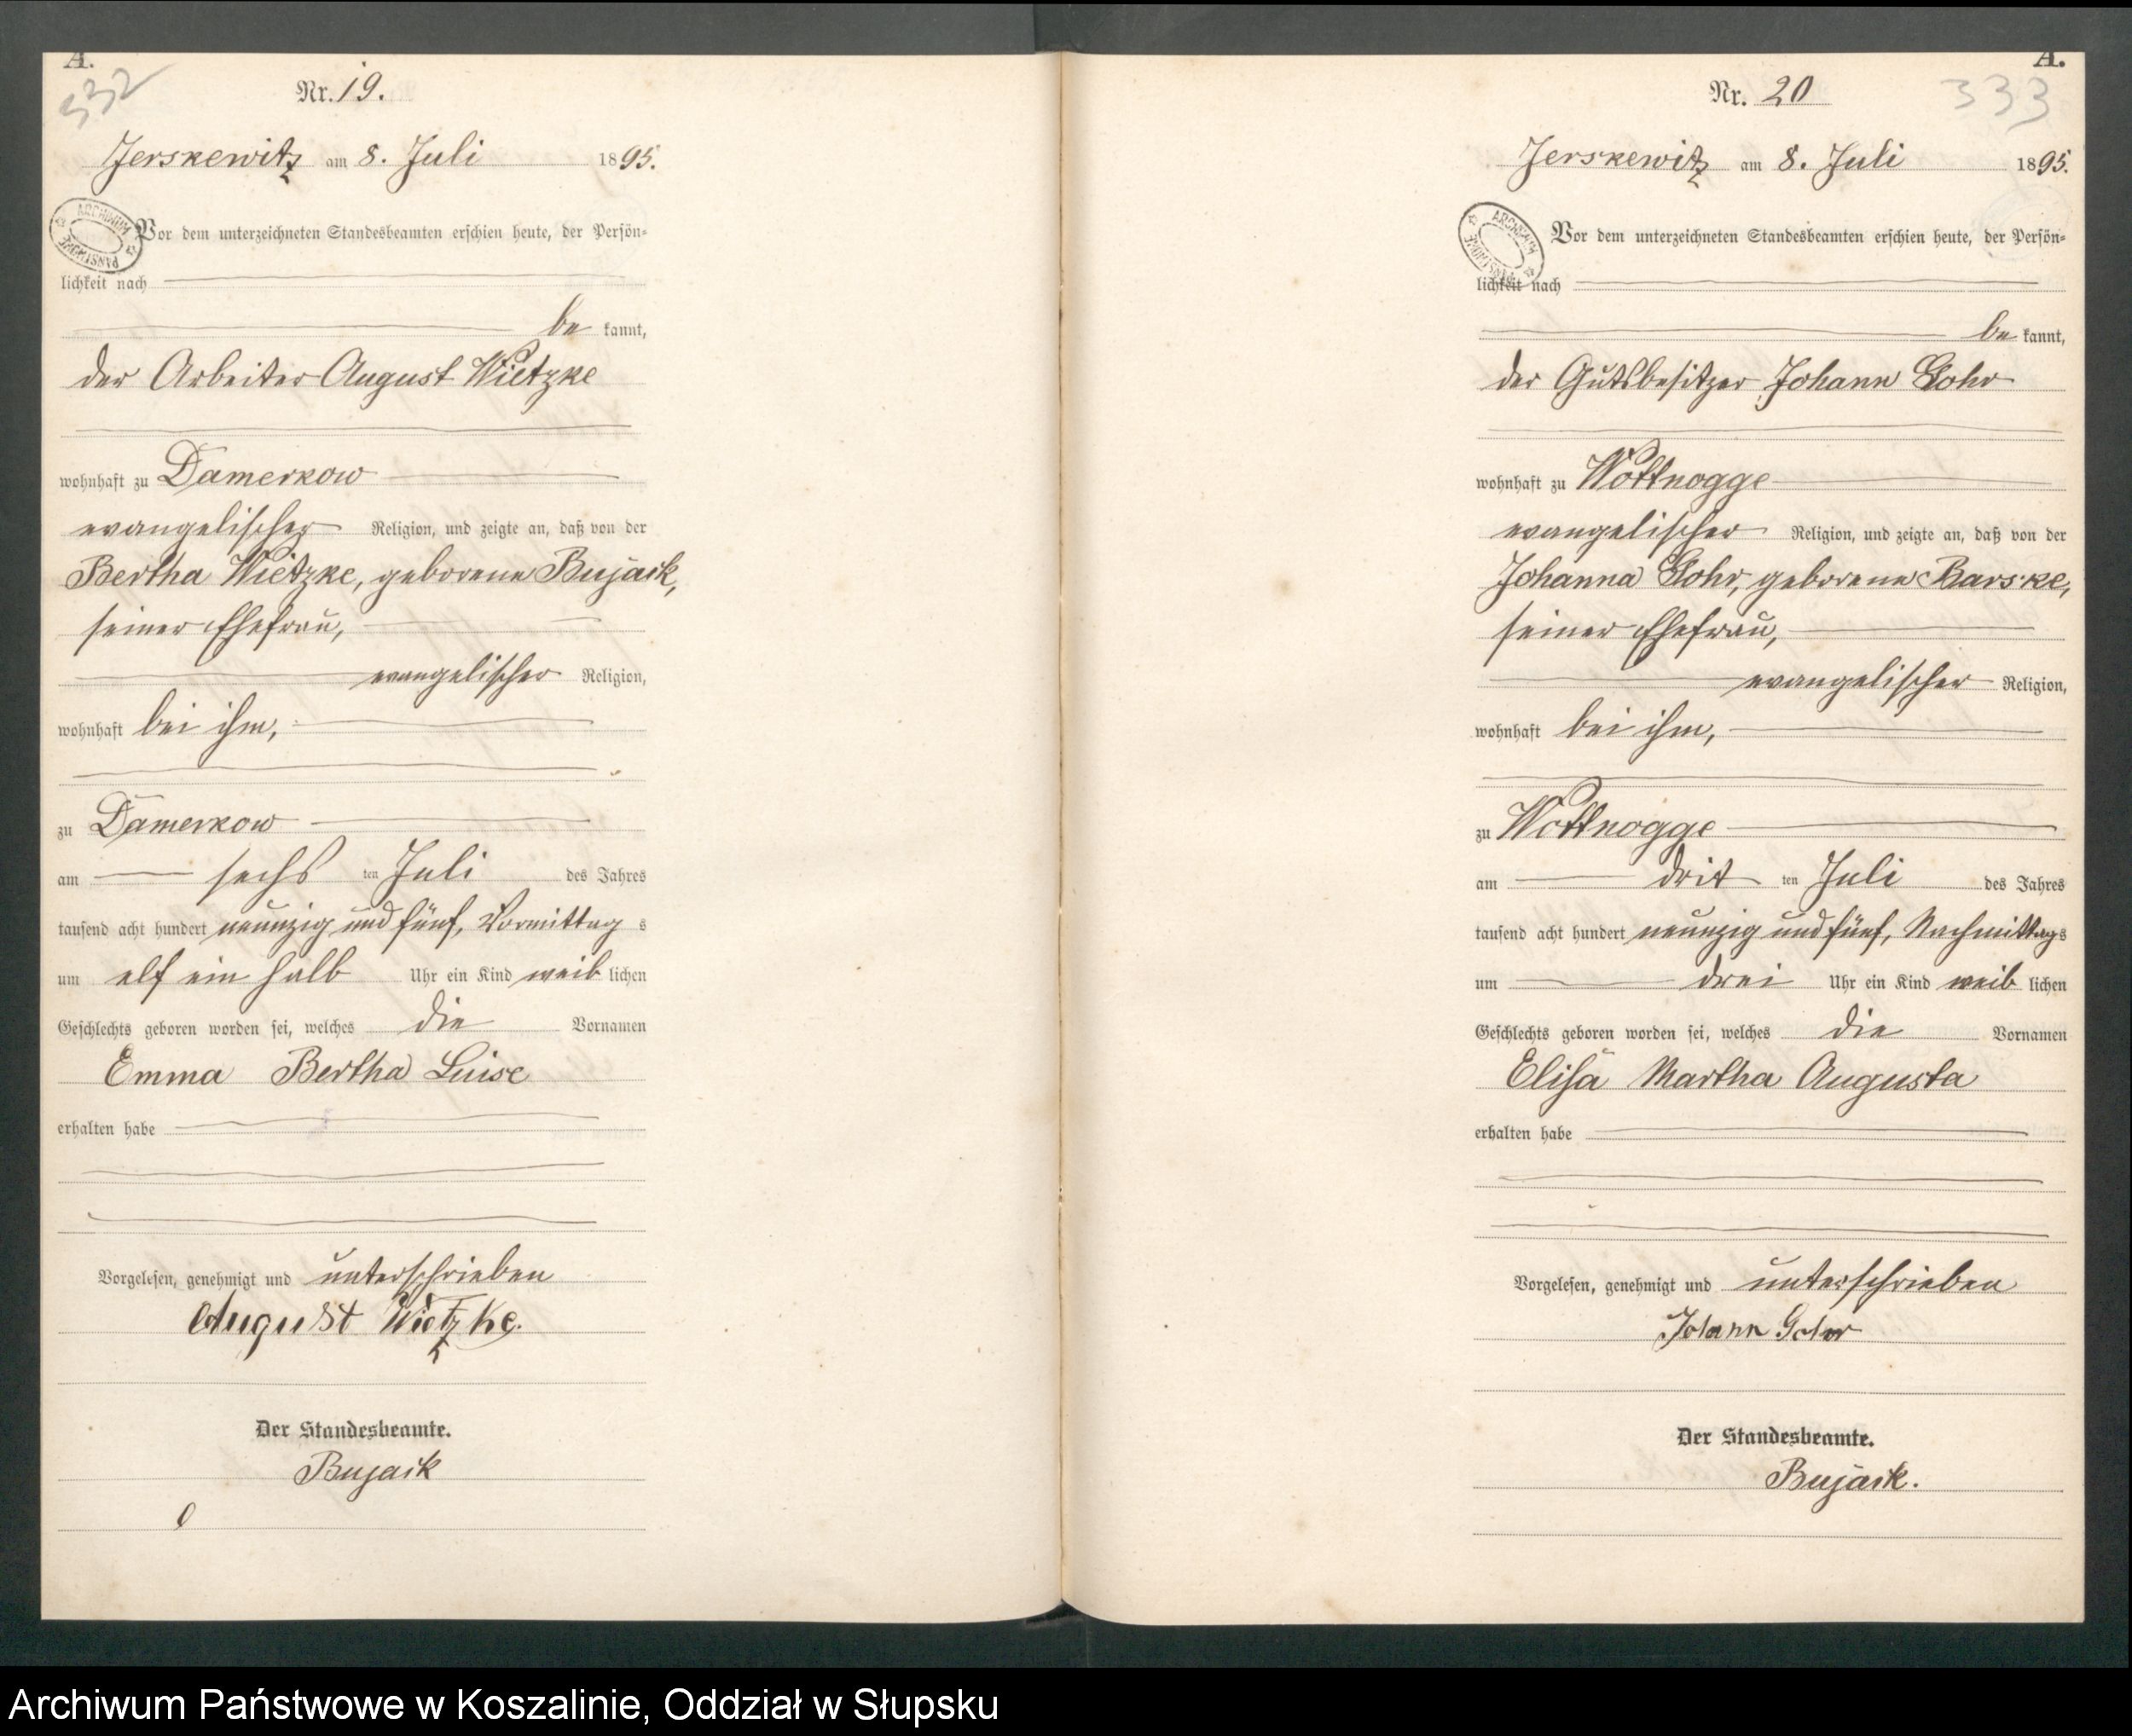 A.
332
Nr. 19.
Jerskewitz am 8. Juli 1895.
ARCHIWUM PAŃSTWOWE
Vor dem unterzeichneten Standesbeamten erschien heute, der Persön-
lichkeit nach
be kannt,
der Arbeiter August Wietzke
wohnhaft zu Damerkow
evangelischer Religion, und zeigte an, daß von der
Bertha Wietzke, geborene Bujack,
seiner Ehefrau,
evangelischer Religion,
wohnhaft bei ihm,
zu Damerkow
am sechs ten Juli des Jahres
tausend acht hundert neunzig und fünf, Vormittag s
um elf ein halb Uhr ein Kind weib lichen
Geschlechts geboren worden sei, welches die Vornamen
Emma Bertha Luise
erhalten habe
Vorgelesen, genehmigt und unterschrieben
August Wietzke.
Der Standesbeamte.
Bujack
A.
333
Nr. 20
Jerskewitz am 8. Juli 1895.
ARCHIWUM PAŃSTWOWE
Vor dem unterzeichneten Standesbeamten erschien heute, der Persön-
lichkeit nach
be kannt,
der Gutsbesitzer Johann Gohr
wohnhaft zu Wottnogge
evangelischer Religion, und zeigte an, daß von der
Johanna Gohr, geborene Barske,
seiner Ehefrau,
evangelischer Religion,
wohnhaft bei ihm,
zu Wottnogge
am drit ten Juli des Jahres
tausend acht hundert neunzig und fünf, Nachmittags
um drei Uhr ein Kind weib lichen
Geschlechts geboren worden sei, welches die Vornamen
Elisa Martha Augusta
erhalten habe
Vorgelesen, genehmigt und unterschrieben
Johann Gohr
Der Standesbeamte.
Bujack.
Archiwum Państwowe w Koszalinie, Oddział w Słupsku